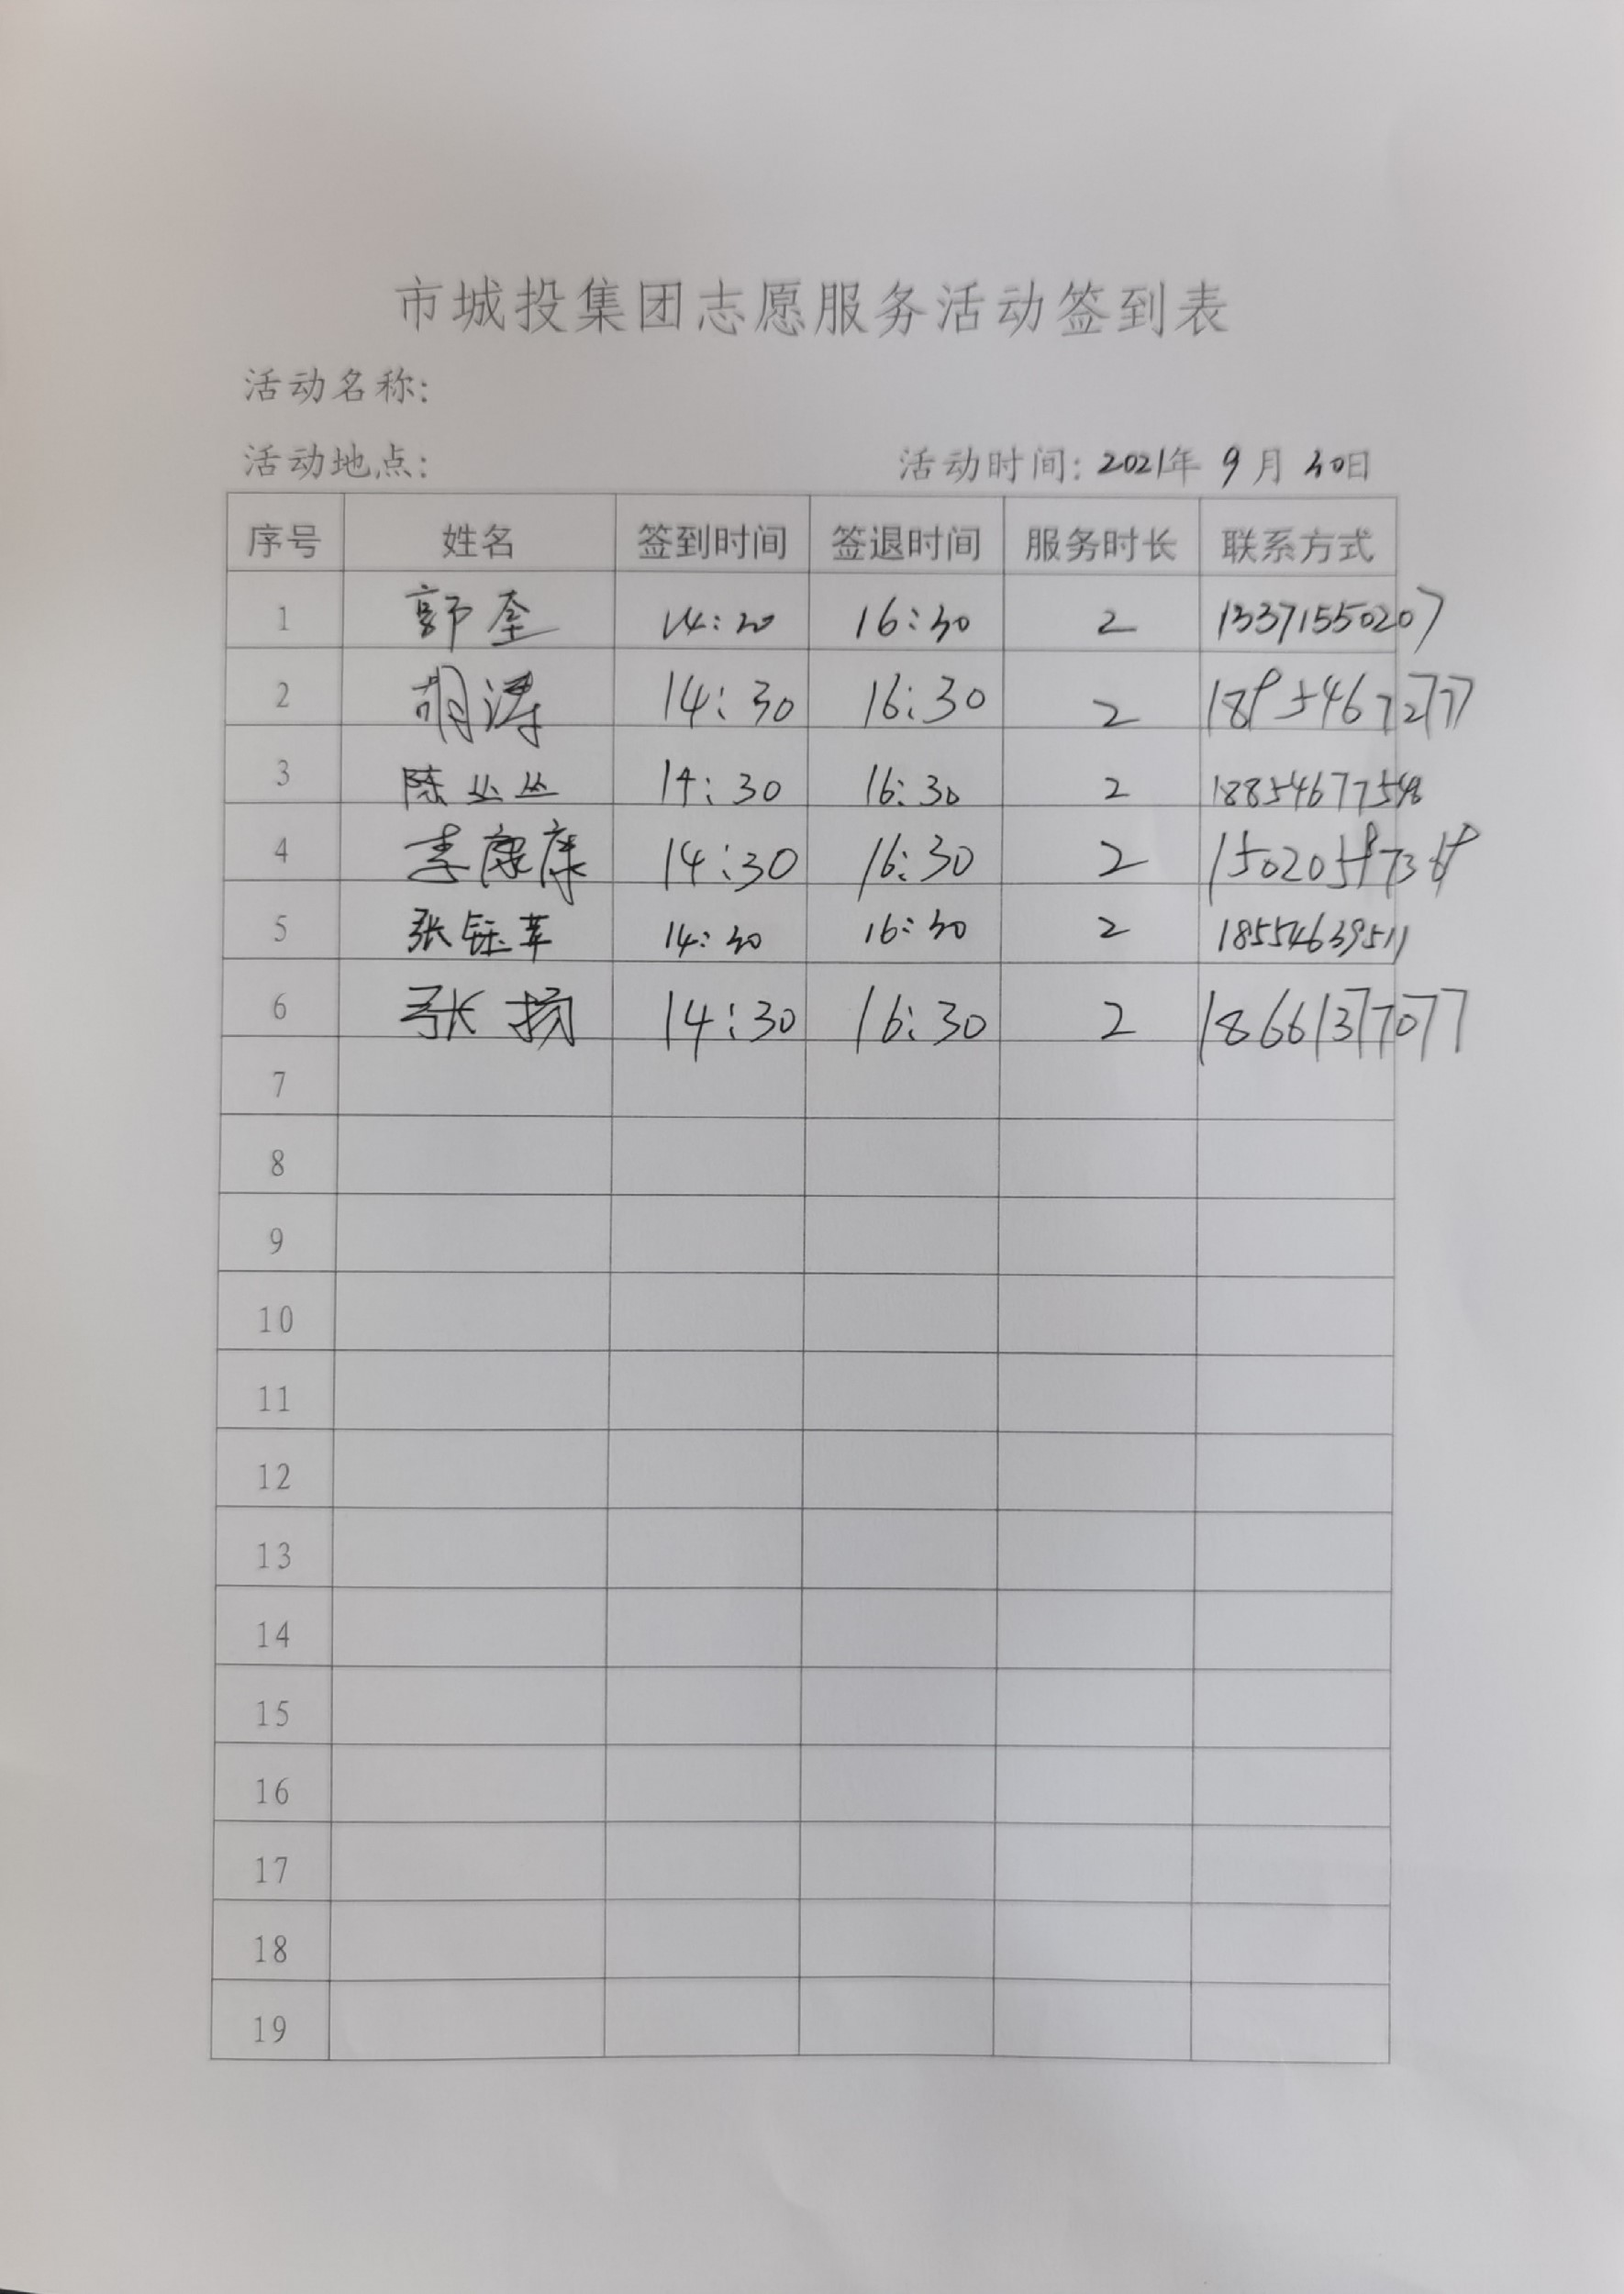 市城投集团志愿服务活动签到表
活动名称:
活动地点: 活动时间: 2021年 9月 30日
序号 姓名 签到时间 签退时间 服务时长 联系方式
1 郭奎 14:30 16:30 2 13371550207
2 胡涛 14:30 16:30 2 18954672777
3 陈丛丛 14:30 16:30 2 18854677548
4 李康康 14:30 16:30 2
5 张钰苹 14:30 16:30 2 18554639511
6 张扬 14:30 16:30 2 18661377077
7
8
9
10
11
12
13
14
15
16
17
18
19